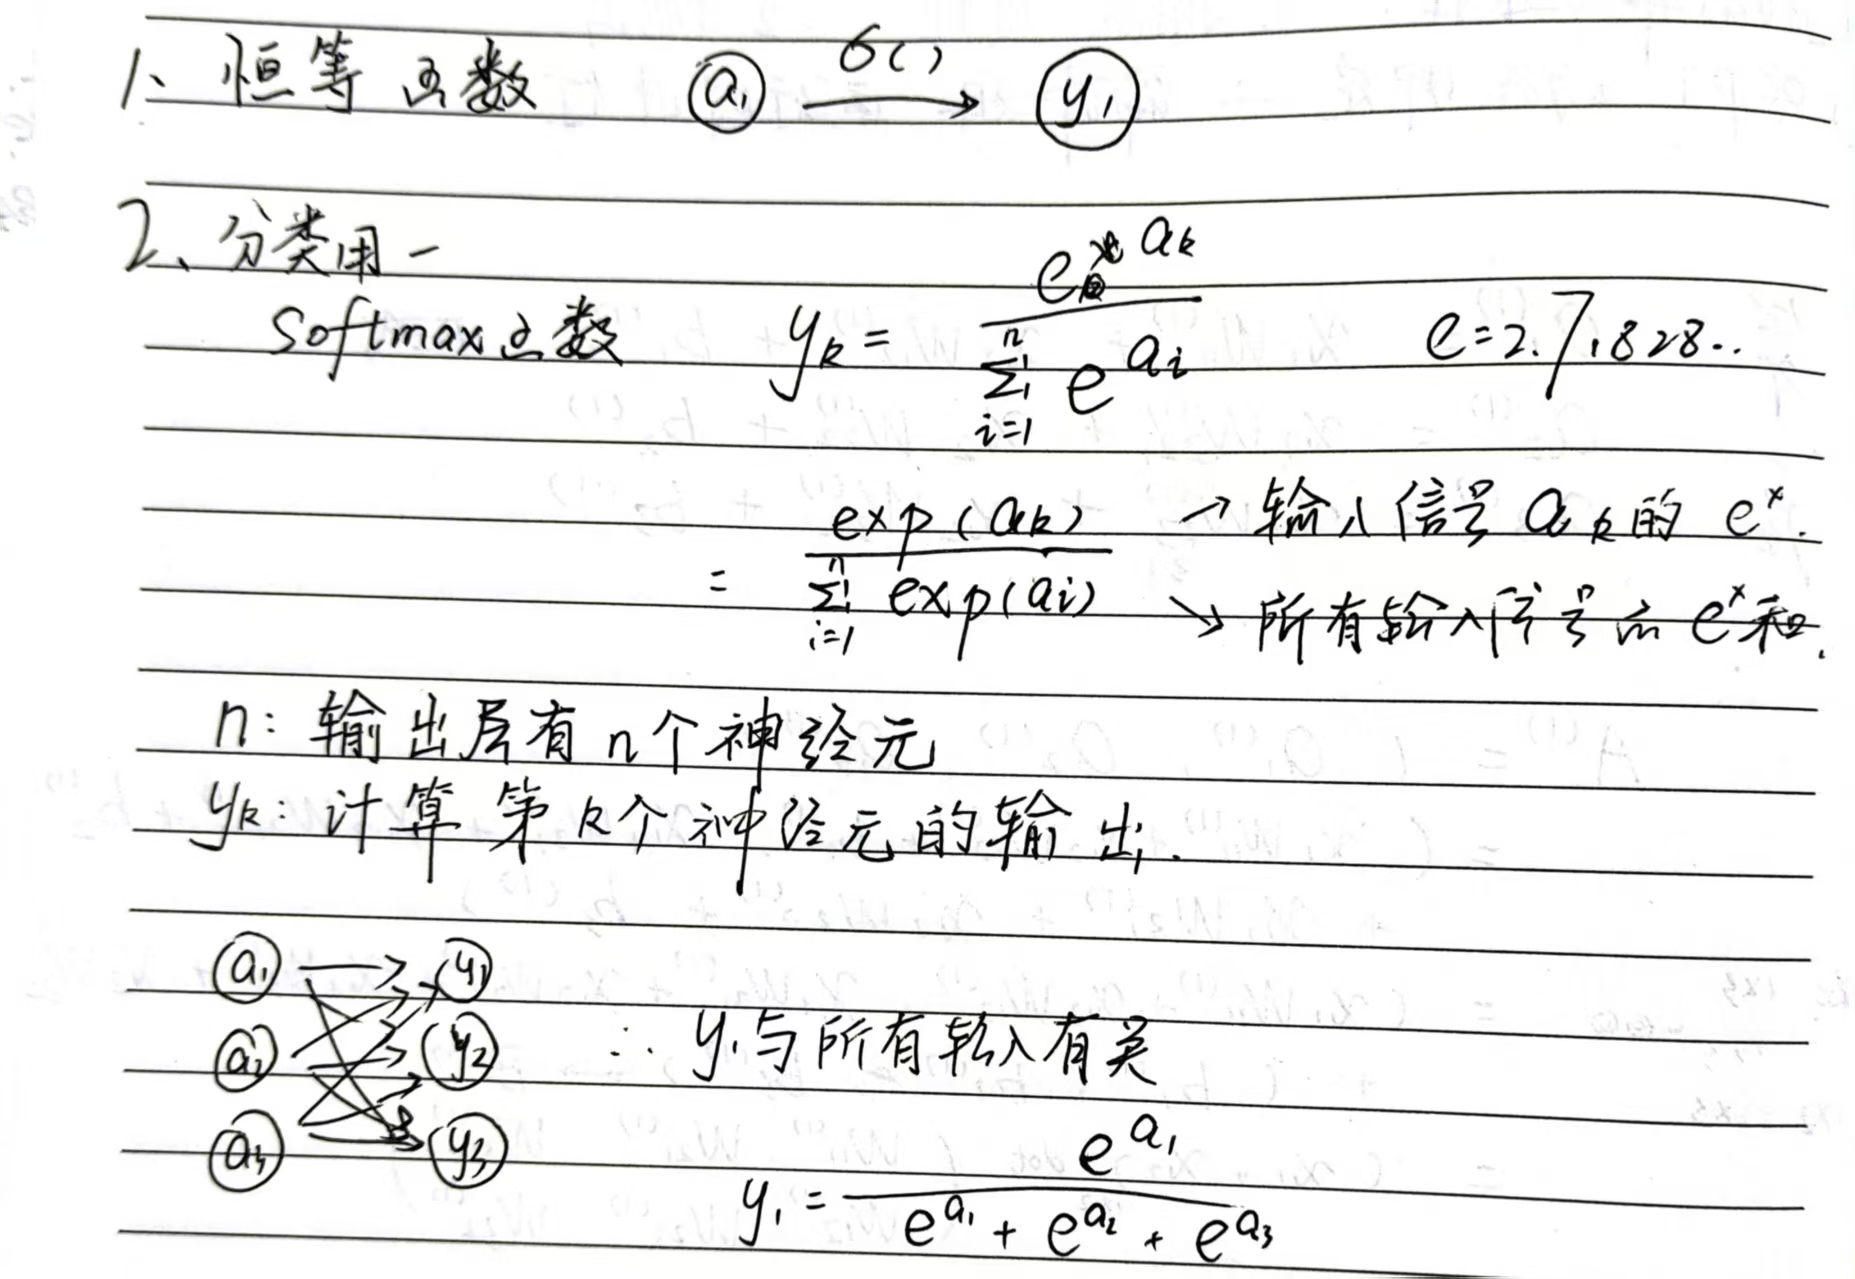 1、恒等函数 a₁ σ( ) → y₁
2、分类用—
softmax函数 yₖ = e^{aₖ} / ∑_{i=1}^{n} e^{aᵢ} e=2.71828..
= exp(aₖ) / ∑_{i=1}^{n} exp(aᵢ) → 输入信号 aₖ的 eˣ.
↘ 所有输入信号的 eˣ和.
n: 输出层有n个神经元
yₖ: 计算第k个神经元的输出.
a₁ y₁
a₂ y₂ ∴ y₁与所有输入有关
a₃ y₃
y₁ = e^{a₁} / e^{a₁} + e^{a₂} + e^{a₃}